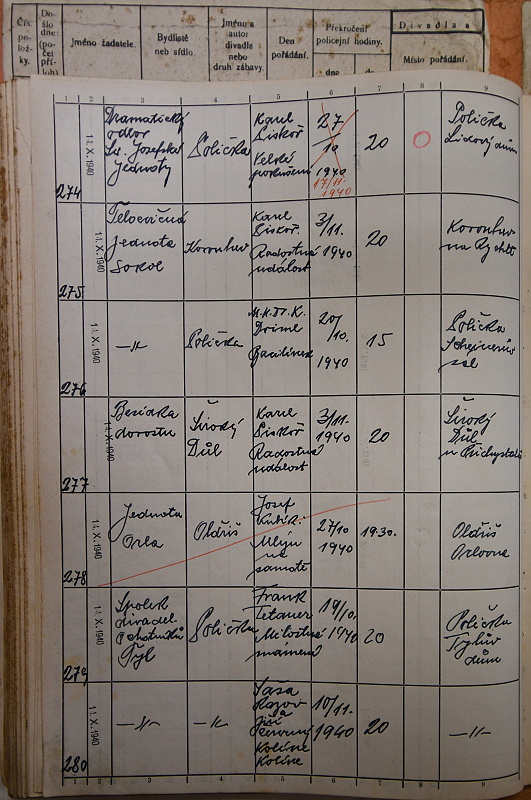 Čís. po- lož- ky.
Do- šlo dne: (po- čet pří- loh)
Jméno žadatele.
Bydliště neb sídlo.
Jméno a autor divadla nebo druh zábavy.
Den pořádání.
Překročení policejní hodiny.
dne
do
Divadla a
Místo pořádání.
1 2 3 4 5 6 7 8 9
274
14. X. 1940
Dramatický
odbor
Sv. Josefské
Jednoty
Polička
Karel
Piskoř
Kelské
pokušení
27
10
1940
17/11.
1940
20
Polička
Lidový dům
275
14. X. 1940
Tělocvičná
Jednota
Sokol
Korouhev
Karel
Piskoř.
Radostná
událost
3/11.
1940
20
Korouhev
na Rychtě
276
14. X. 1940
—"—
Polička
Driml
20/
10.
1940
15
Polička
sál
277
14. X. 1940
Besídka
dorostu
Široký
Důl
Karel
Piskoř
Radostná
událost
3/11.
1940
20
Široký
Důl
278
14. X. 1940
Jednota
Orla
Oldřiš
Josef
Mlýn
na
samotě
27/10
1940
19.30.
Oldřiš
Orlovna
279
14. X. 1940
Spolek
divadel.
Ochotníků
Tyl
Polička
Frank
Tetauer
Milostná
znamení
19/10.
1940
20
Polička
Tylův
dům
280
14. X. 1940
—"—
—"—
Jiří
Kolíne
Kolíne
10/11.
1940
20
—"—
1 2 3 4 5 6 7 8 9